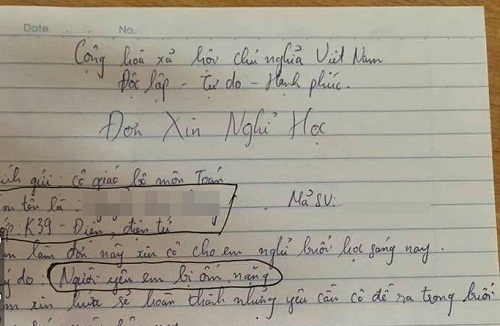 Date No.
Cộng hoà xả hội chủ nghĩa Việt Nam
Độc lập - Tự do - Hạnh phúc.
Đơn Xin Nghỉ Học
ính gửi: cô giáo bộ môn Toán
m tên là: Mã SV:
ớp: K39 - Điện, điện tử
m làm đơn này xin cô cho em nghỉ buổi học sáng nay.
ý do: Người yêu em bị ốm nặng
m xin hứa sẽ hoàn thành những yêu cầu cô đề ra trong buổi